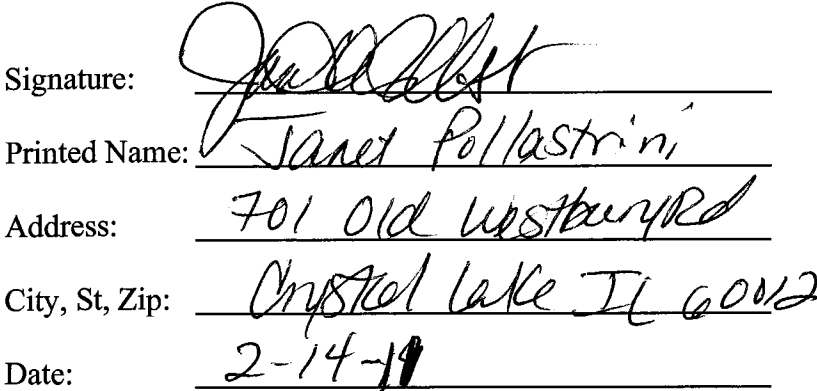 Signature:
Printed Name: Janet Pollastrini
Address: 701 Old Westbury Rd
City, St, Zip: Crystal Lake IL 60012
Date: 2-14-